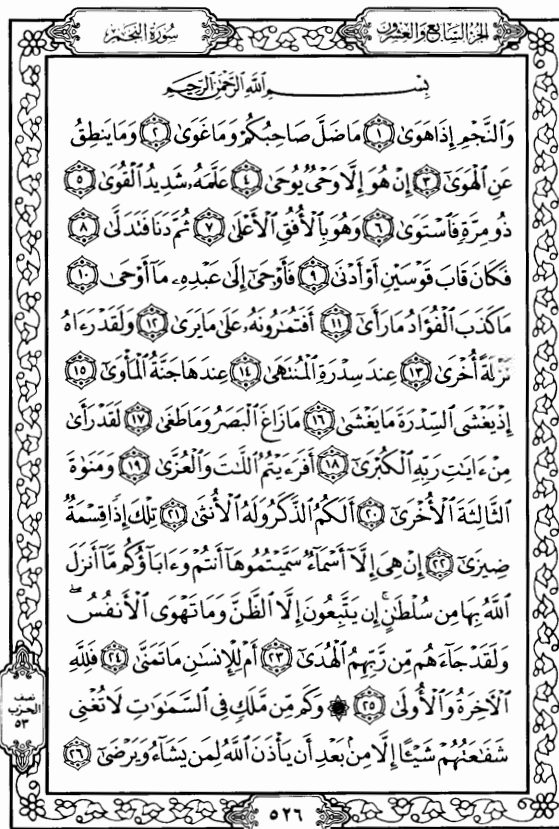 سُورَةُ النَّجْمِ
الجُزْءُ السَّابِعُ وَالعِشْرُونَ
بِسْمِ اللَّهِ الرَّحْمَٰنِ الرَّحِيمِ
وَالنَّجْمِ إِذَا هَوَىٰ ١ مَا ضَلَّ صَاحِبُكُمْ وَمَا غَوَىٰ ٢ وَمَا يَنطِقُ
عَنِ الْهَوَىٰ ٣ إِنْ هُوَ إِلَّا وَحْيٌ يُوحَىٰ ٤ عَلَّمَهُ شَدِيدُ الْقُوَىٰ ٥
ذُو مِرَّةٍ فَاسْتَوَىٰ ٦ وَهُوَ بِالْأُفُقِ الْأَعْلَىٰ ٧ ثُمَّ دَنَا فَتَدَلَّىٰ ٨
فَكَانَ قَابَ قَوْسَيْنِ أَوْ أَدْنَىٰ ٩ فَأَوْحَىٰ إِلَىٰ عَبْدِهِ مَا أَوْحَىٰ ١٠
مَا كَذَبَ الْفُؤَادُ مَا رَأَىٰ ١١ أَفَتُمَارُونَهُ عَلَىٰ مَا يَرَىٰ ١٢ وَلَقَدْ رَءَاهُ
نَزْلَةً أُخْرَىٰ ١٣ عِندَ سِدْرَةِ الْمُنتَهَىٰ ١٤ عِندَهَا جَنَّةُ الْمَأْوَىٰ ١٥
إِذْ يَغْشَى السِّدْرَةَ مَا يَغْشَىٰ ١٦ مَا زَاغَ الْبَصَرُ وَمَا طَغَىٰ ١٧ لَقَدْ رَأَىٰ
مِنْ ءَايَاتِ رَبِّهِ الْكُبْرَىٰ ١٨ أَفَرَءَيْتُمُ اللَّاتَ وَالْعُزَّىٰ ١٩ وَمَنَوٰةَ
الثَّالِثَةَ الْأُخْرَىٰ ٢٠ أَلَكُمُ الذَّكَرُ وَلَهُ الْأُنثَىٰ ٢١ تِلْكَ إِذًا قِسْمَةٌ
ضِيزَىٰ ٢٢ إِنْ هِيَ إِلَّا أَسْمَاءٌ سَمَّيْتُمُوهَا أَنتُمْ وَءَابَاؤُكُم مَّا أَنزَلَ
اللَّهُ بِهَا مِن سُلْطَٰنٍ ۚ إِن يَتَّبِعُونَ إِلَّا الظَّنَّ وَمَا تَهْوَى الْأَنفُسُ ۖ
وَلَقَدْ جَاءَهُم مِّن رَّبِّهِمُ الْهُدَىٰ ٢٣ أَمْ لِلْإِنسَٰنِ مَا تَمَنَّىٰ ٢٤ فَلِلَّهِ
الْآخِرَةُ وَالْأُولَىٰ ٢٥ ۞ وَكَم مِّن مَّلَكٍ فِي السَّمَٰوَٰتِ لَا تُغْنِي
شَفَٰعَتُهُمْ شَيْئًا إِلَّا مِن بَعْدِ أَن يَأْذَنَ اللَّهُ لِمَن يَشَاءُ وَيَرْضَىٰ ٢٦
نصف
الحزب
٥٣
٥٢٦